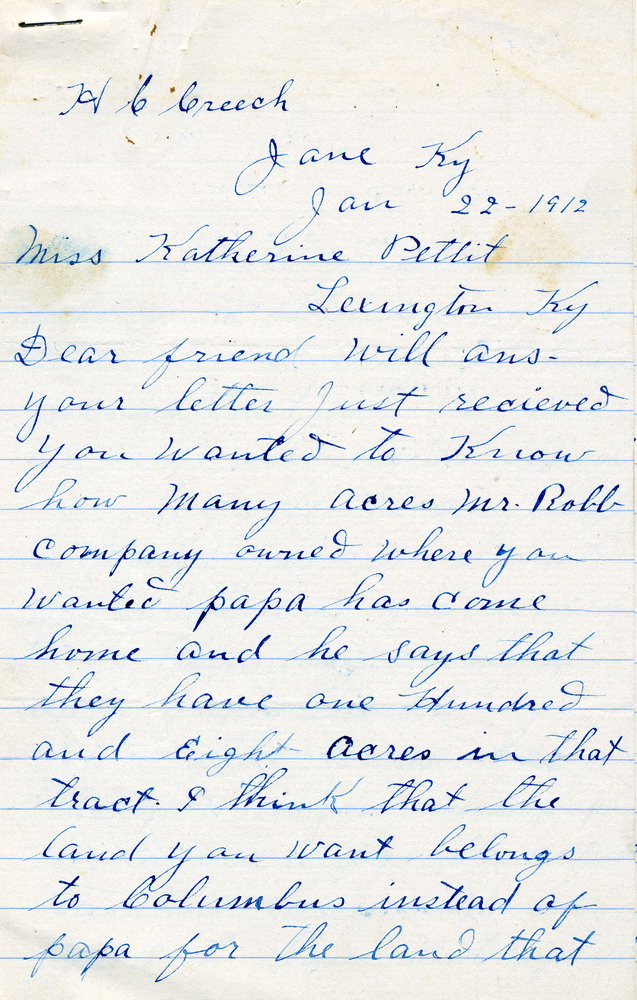 H C Creech
Jane Ky
Jan 22-1912
Miss Katherine Pettit
Lexington Ky
Dear friend will ans-
your letter Just recieved
You wanted to Know
how Many acres Mr. Robb
Company owned where you
wanted papa has come
home and he says that
they have one Hundred
and Eight acres in that
tract. I think that the
land you want belongs
to Columbus instead of
papa for The land that